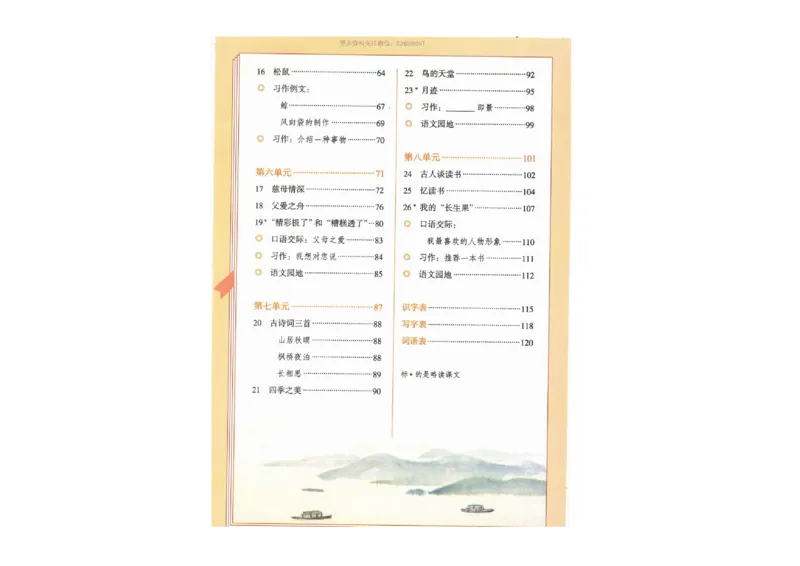 16 松鼠……64
◎ 习作例文：
鲸……67
风向袋的制作……69
◎ 习作：介绍一种事物……70
第六单元……71
17 慈母情深……72
18 父爱之舟……76
19* “精彩极了”和“糟糕透了”……80
◎ 口语交际：父母之爱……83
◎ 习作：我想对您说……84
◎ 语文园地……85
第七单元……87
20 古诗词三首……88
山居秋暝……88
枫桥夜泊……88
长相思……89
21 四季之美……90
22 鸟的天堂……92
23* 月迹……95
◎ 习作：______即景……98
◎ 语文园地……99
第八单元……101
24 古人谈读书……102
25 忆读书……104
26* 我的“长生果”……107
◎ 口语交际：
我最喜欢的人物形象……110
◎ 习作：推荐一本书……111
◎ 语文园地……112
识字表……115
写字表……118
词语表……120
标*的是略读课文